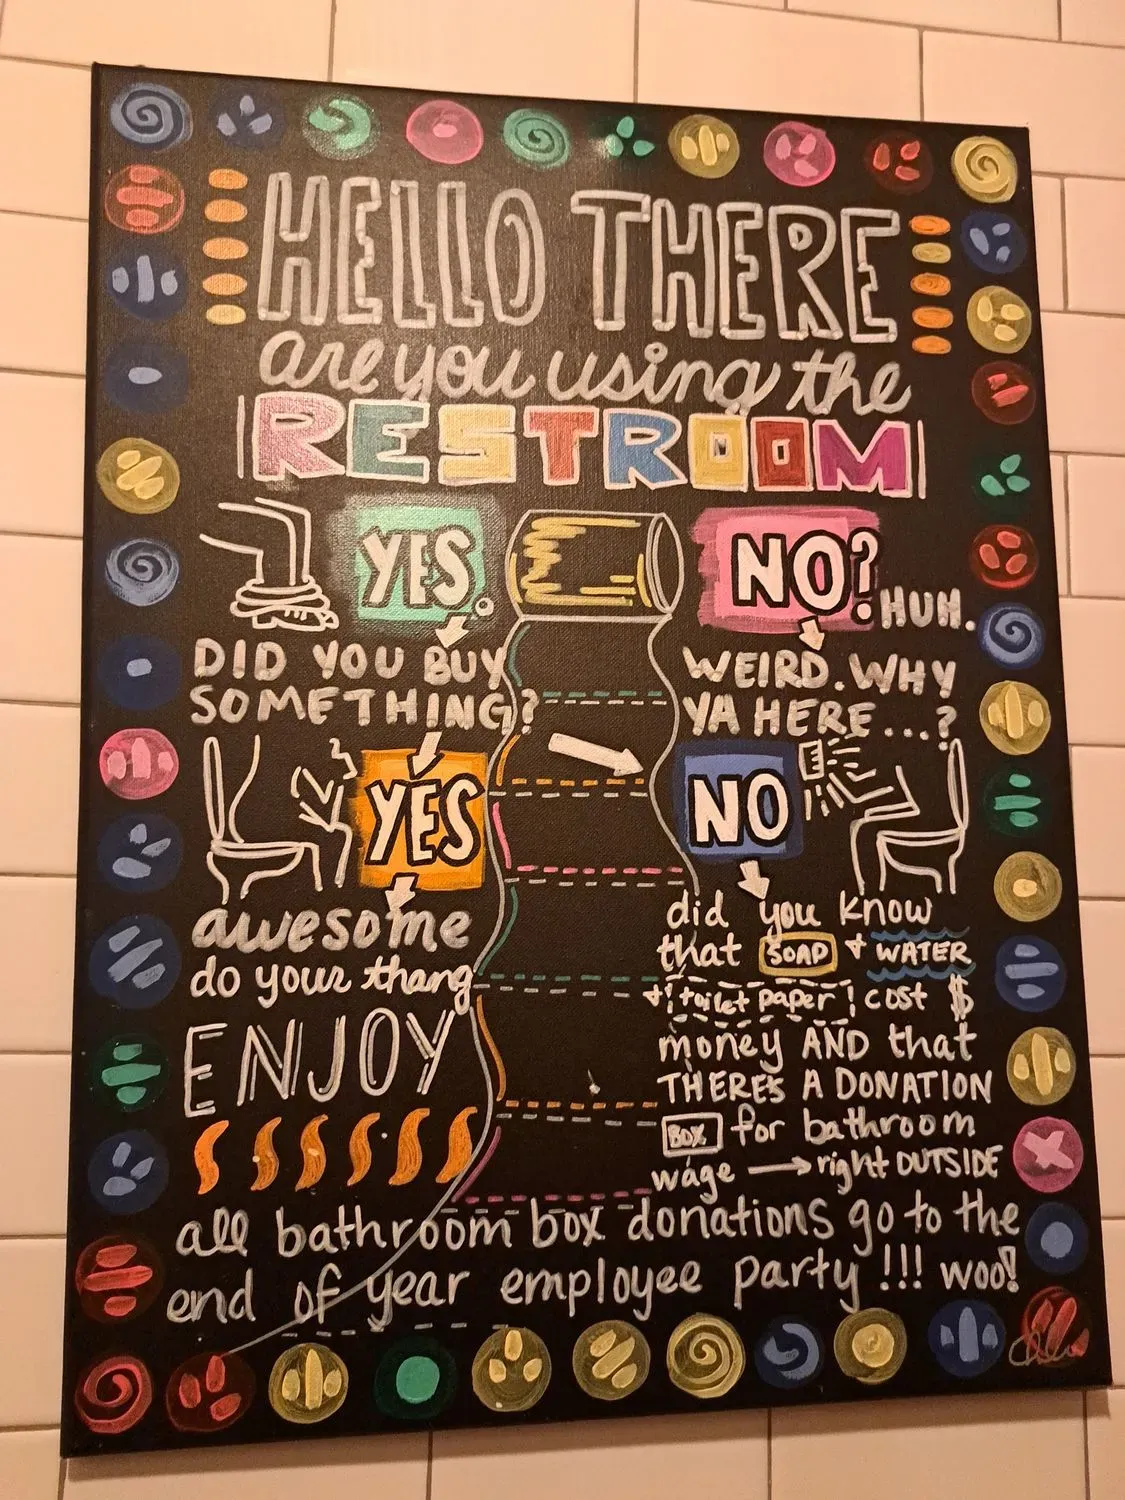 HELLO THERE
are you using the
RESTROOM
YES.
DID YOU BUY
SOMETHING?
YES
awesome
do your thang
ENJOY
NO? HUH.
WEIRD. WHY
YA HERE...?
NO
did you know
that SOAP + WATER
+ toilet paper cost $
money AND that
THERE'S A DONATION
BOX for bathroom
wage → right OUTSIDE
all bathroom box donations go to the
end of year employee party !!! woo!